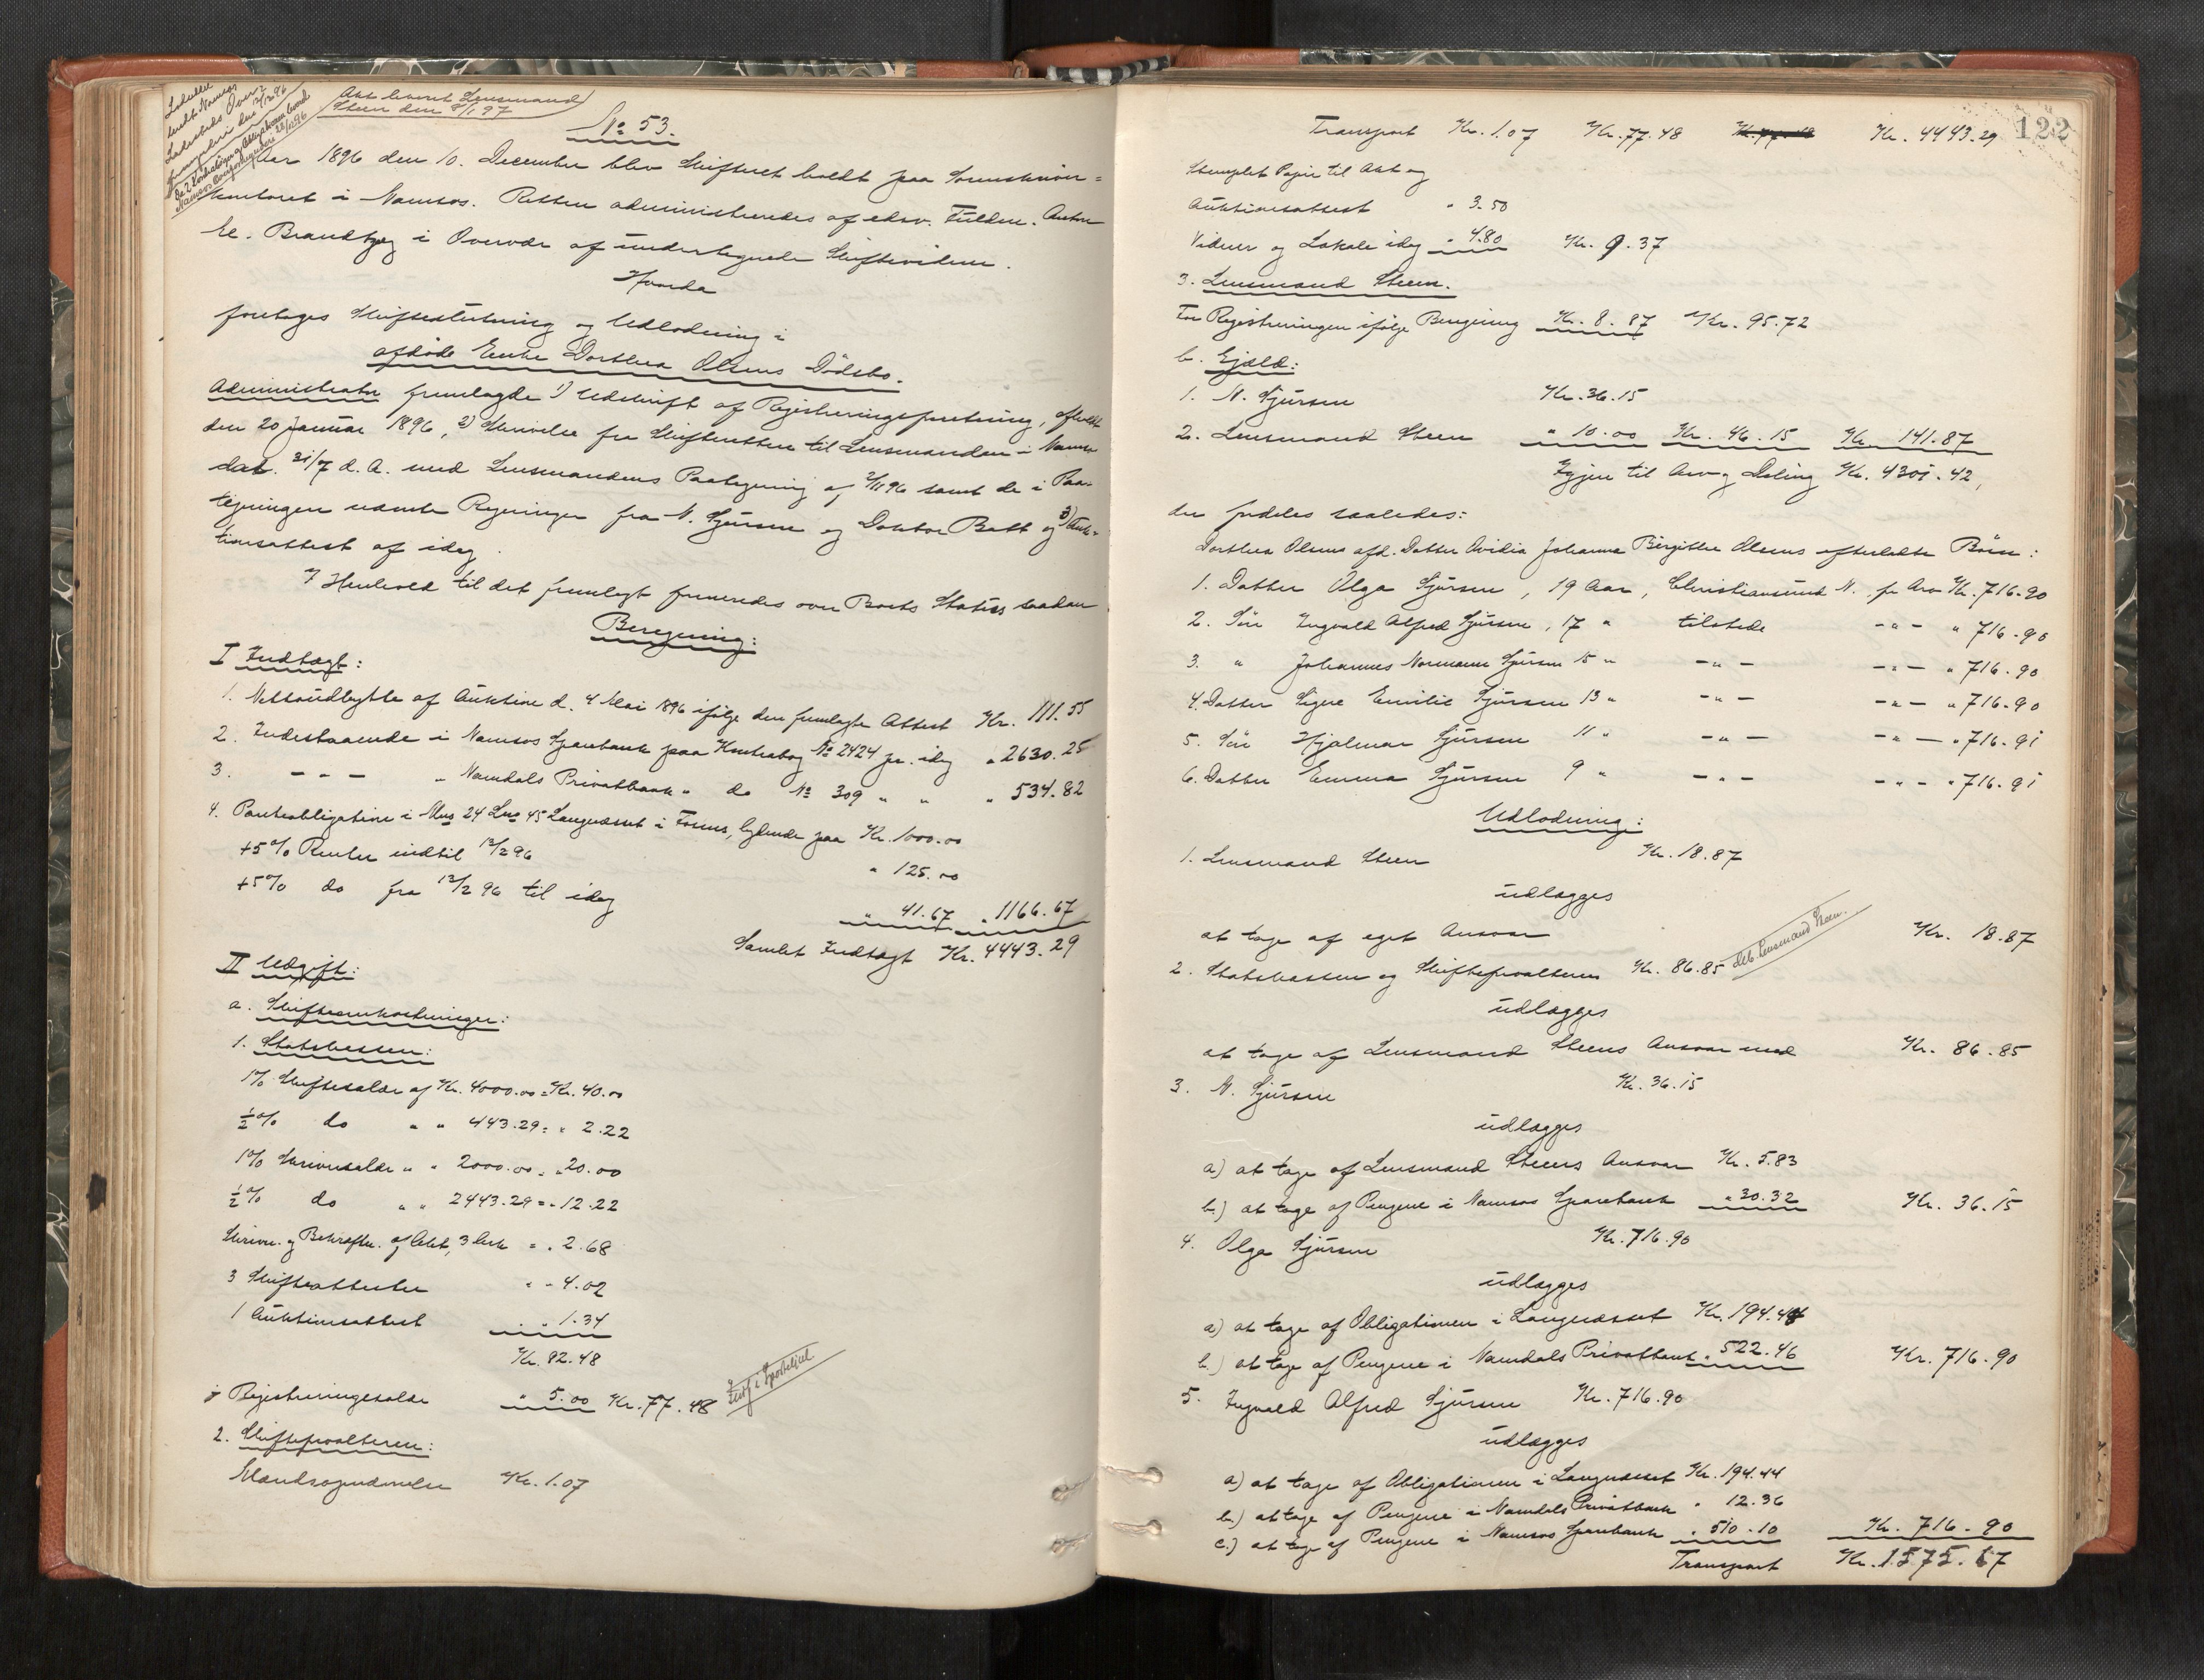 Akt leveret Lensmand
Steen den 8/1 97
No 53.
Aar 1896 den 10. December blev Skifteret holdt paa Sorenskriver-
kontoret i Namsos. Retten administreredes af edsv. Fuldm. Anton
El. Brandtzæg i Overvær af undertegnede Skiftevidner.
Hvorda
foretoges Skifteslutning og Udlodning i
afdøde Enke Dorthea Olsens Dødsbo.
Administrator fremlagde 1) Udskrift af Registreringsforretning, afholdt
den 20 Januar 1896, 2) Skrivelse fra Skifteretten til Lensmanden i Namsen
dal. 31/7 d. A. med Lensmandens Paategning af 2/11 96 samt de i Paa-
tegningen nævnte Regninger fra N. Sjursen og Doktor Batt og 3) Auk-
tionsattest af idag.
I Henhold til det fremlagt fremeredes over Boets Status saadan
Beregning:
I Indtægt:
1. Nettoudbytte af Auktion d. 4 Mai 1896 ifølge den fremlagte Attest Kr. 111.55
2. Indestaaende i Namsos Sparebank paa Kontrabog No 2424 pr. idag " 2630.25
3. - " - " Namdals Privatbank " do No 309 " " " 534.82
4. Panteobligation i Mno 24 Lno 45 Langnæsset i Fosnes, lydende paa Kr. 1000.00
+5% Renter indtil 12/2 96 " 125.00
+5% do fra 12/2 96 til idag " 41.67 " 1166.67
Samlet Indtægt Kr. 4443.29
II Udgift:
a. Skifteomkostninger:
1. Statskassen:
1% Skiftesalær af Kr. 4000.00 = Kr. 40.00
½% do " " 443.29 = " 2.22
1% Skriversalær " " 2000.00 = " 20.00
½% do " " 2443.29 = " 12.22
Skrivn. og Bekræftn. af Akt, 3 Ark = " 2.68
3 Skifteattester " " 4.02
1 Auktionsattest " " 1.34
Kr. 82.48
÷ Registreringssalær " 5.00 Kr. 77.48
Indf. i Sporteljnl.
2. Skifteforvalteren:
Mandsopnævnelse Kr. 1.07
122
Transport Kr. 1.07 Kr. 77.48 Kr. 4443.29
Stemplet Papir til Akt og
Auktionsattest " 3.50
Vidner og Lokale idag " 4.80 Kr. 9.37
3. Lensmand Steen.
For Registreringen ifølge Beregning Kr. 8.87 Kr. 95.72
b. Gjæld:
1. N. Sjursen Kr. 36.15
2. Lensmand Steen " 10.00 Kr. 46.15 Kr. 141.87
Igjen til Arv og Deling Kr. 4301.42,
der fordeles saaledes:
Dorthea Olsens afd. Datter Ovidia Johanna Birgitte Olsens efterladte Børn:
1. Datter Olga Sjursen, 19 Aar, Christiansund N. for Arv Kr. 716.90
2. Søn Ingvald Alfred Sjursen, 17 " tilstede - " - " 716.90
3. " Johannes Normann Sjursen 15 " - " - - " - " 716.90
4. Datter Signe Emilie Sjursen 13 " - " - - " - " 716.90
5. Søn Hjalmar Sjursen 11 " - " - - " - " 716.91
6. Datter Emma Sjursen 9 " - " - - " - " 716.91
Udlodning:
1. Lensmand Steen Kr. 18.87
udlægges
at tage af eget Ansvar Kr. 18.87
2. Statskassen og Skifteforvalteren Kr. 86.85
deb. Lensmand Steen.
udlægges
at tage af Lensmand Steens Ansvar med Kr. 86.85
3. N. Sjursen Kr. 36.15
udlægges
a) at tage af Lensmand Steens Ansvar Kr. 5.83
b.) at tage af Pengene i Namsos Sparebank " 30.32 Kr. 36.15
4. Olga Sjursen Kr. 716.90
udlægges
a) at tage af Obligationen i Langnæsset Kr. 194.44
b.) at tage af Pengene i Namdals Privatbank " 522.46 Kr. 716.90
5. Ingvald Alfred Sjursen Kr. 716.90
udlægges
a) at tage af Obligationen i Langnæsset Kr. 194.44
b.) at tage af Pengene i Namdals Privatbank " 12.36
c.) at tage af Pengene i Namsos Sparebank " 510.10 Kr. 716.90
Transport Kr. 1575.67